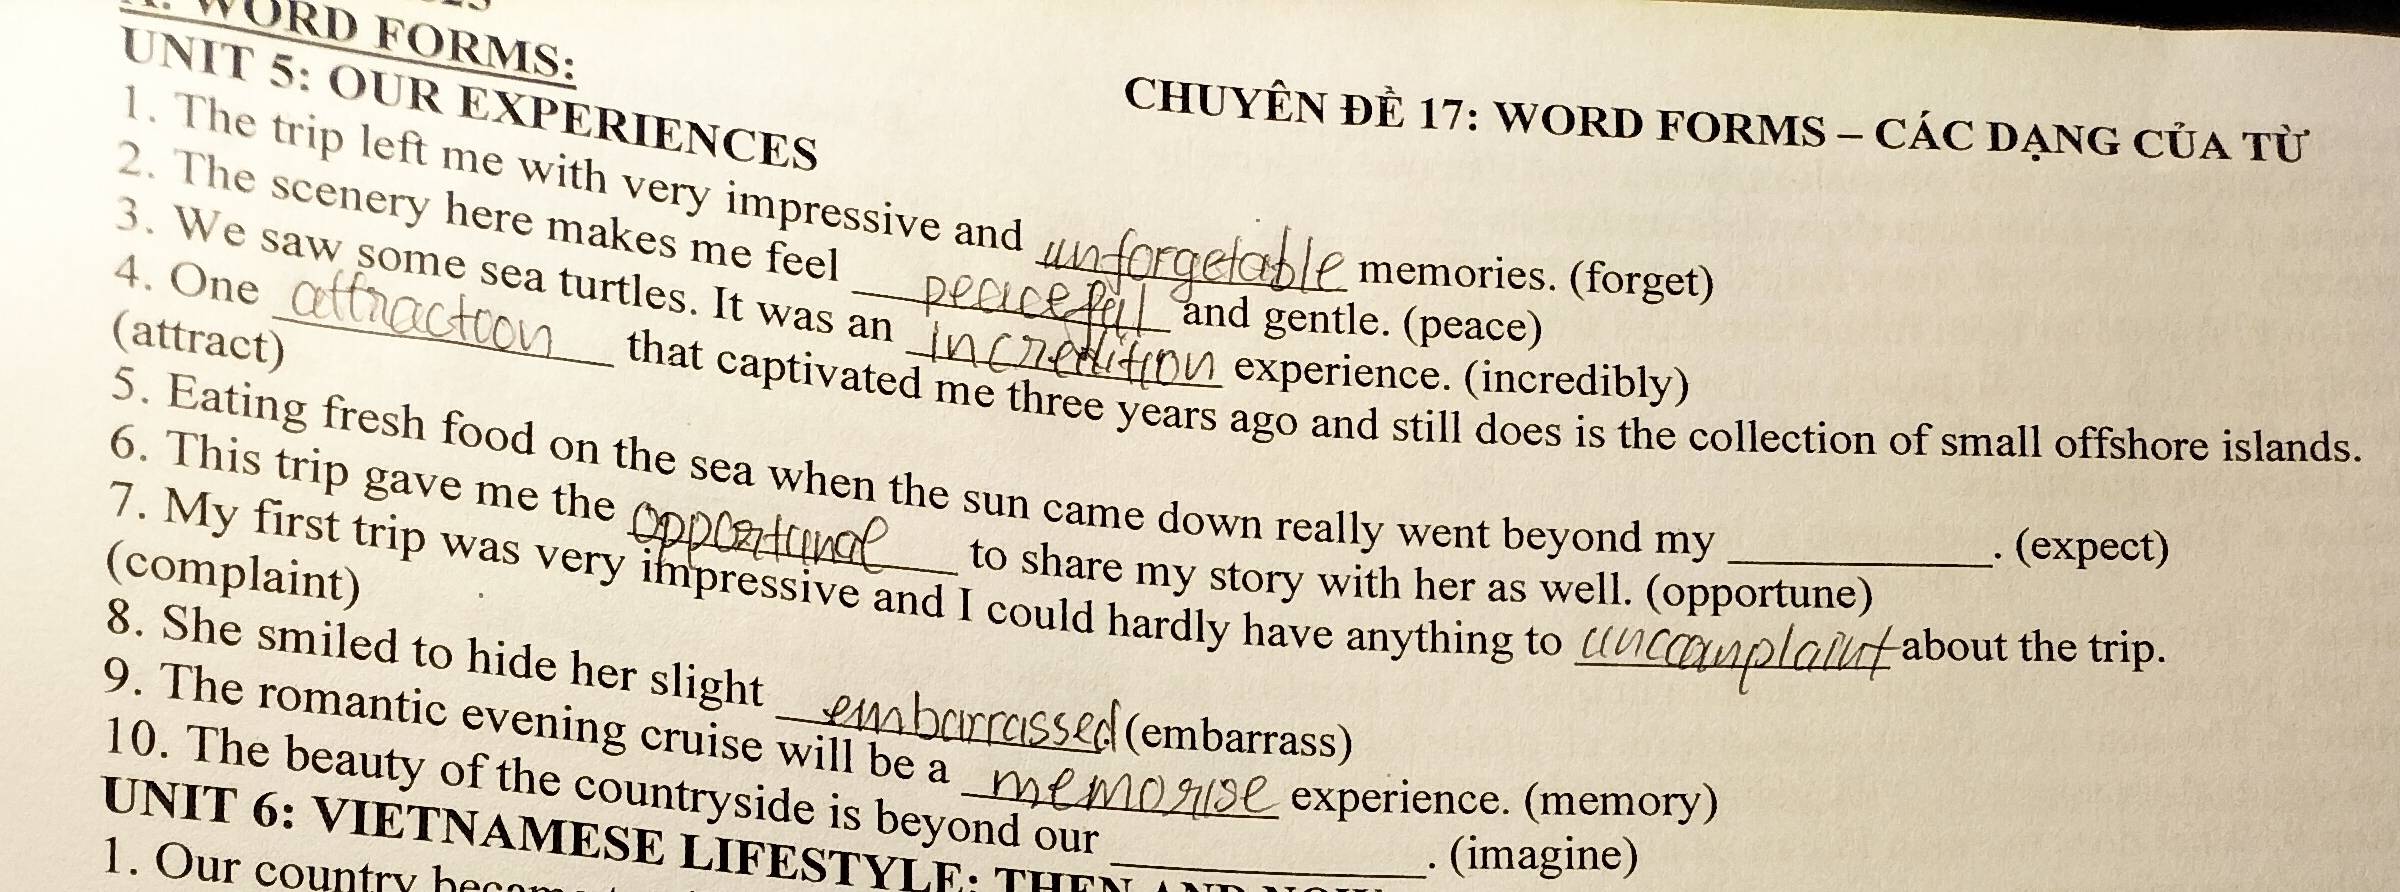 WORD FORMS:
CHUYÊN ĐỀ 17: WORD FORMS – CÁC DẠNG CỦA TỪ
UNIT 5: OUR EXPERIENCES
1. The trip left me with very impressive and unforgetable memories. (forget)
2. The scenery here makes me feel peacefull and gentle. (peace)
3. We saw some sea turtles. It was an incredition experience. (incredibly)
4. One attractoon that captivated me three years ago and still does is the collection of small offshore islands.
(attract)
5. Eating fresh food on the sea when the sun came down really went beyond my ____________. (expect)
6. This trip gave me the opportunal to share my story with her as well. (opportune)
7. My first trip was very impressive and I could hardly have anything to uncomplaint about the trip.
(complaint)
8. She smiled to hide her slight embarrassed (embarrass)
9. The romantic evening cruise will be a memorise experience. (memory)
10. The beauty of the countryside is beyond our ____________. (imagine)
UNIT 6: VIETNAMESE LIFESTYLE: THEN AND NOW
1. Our country